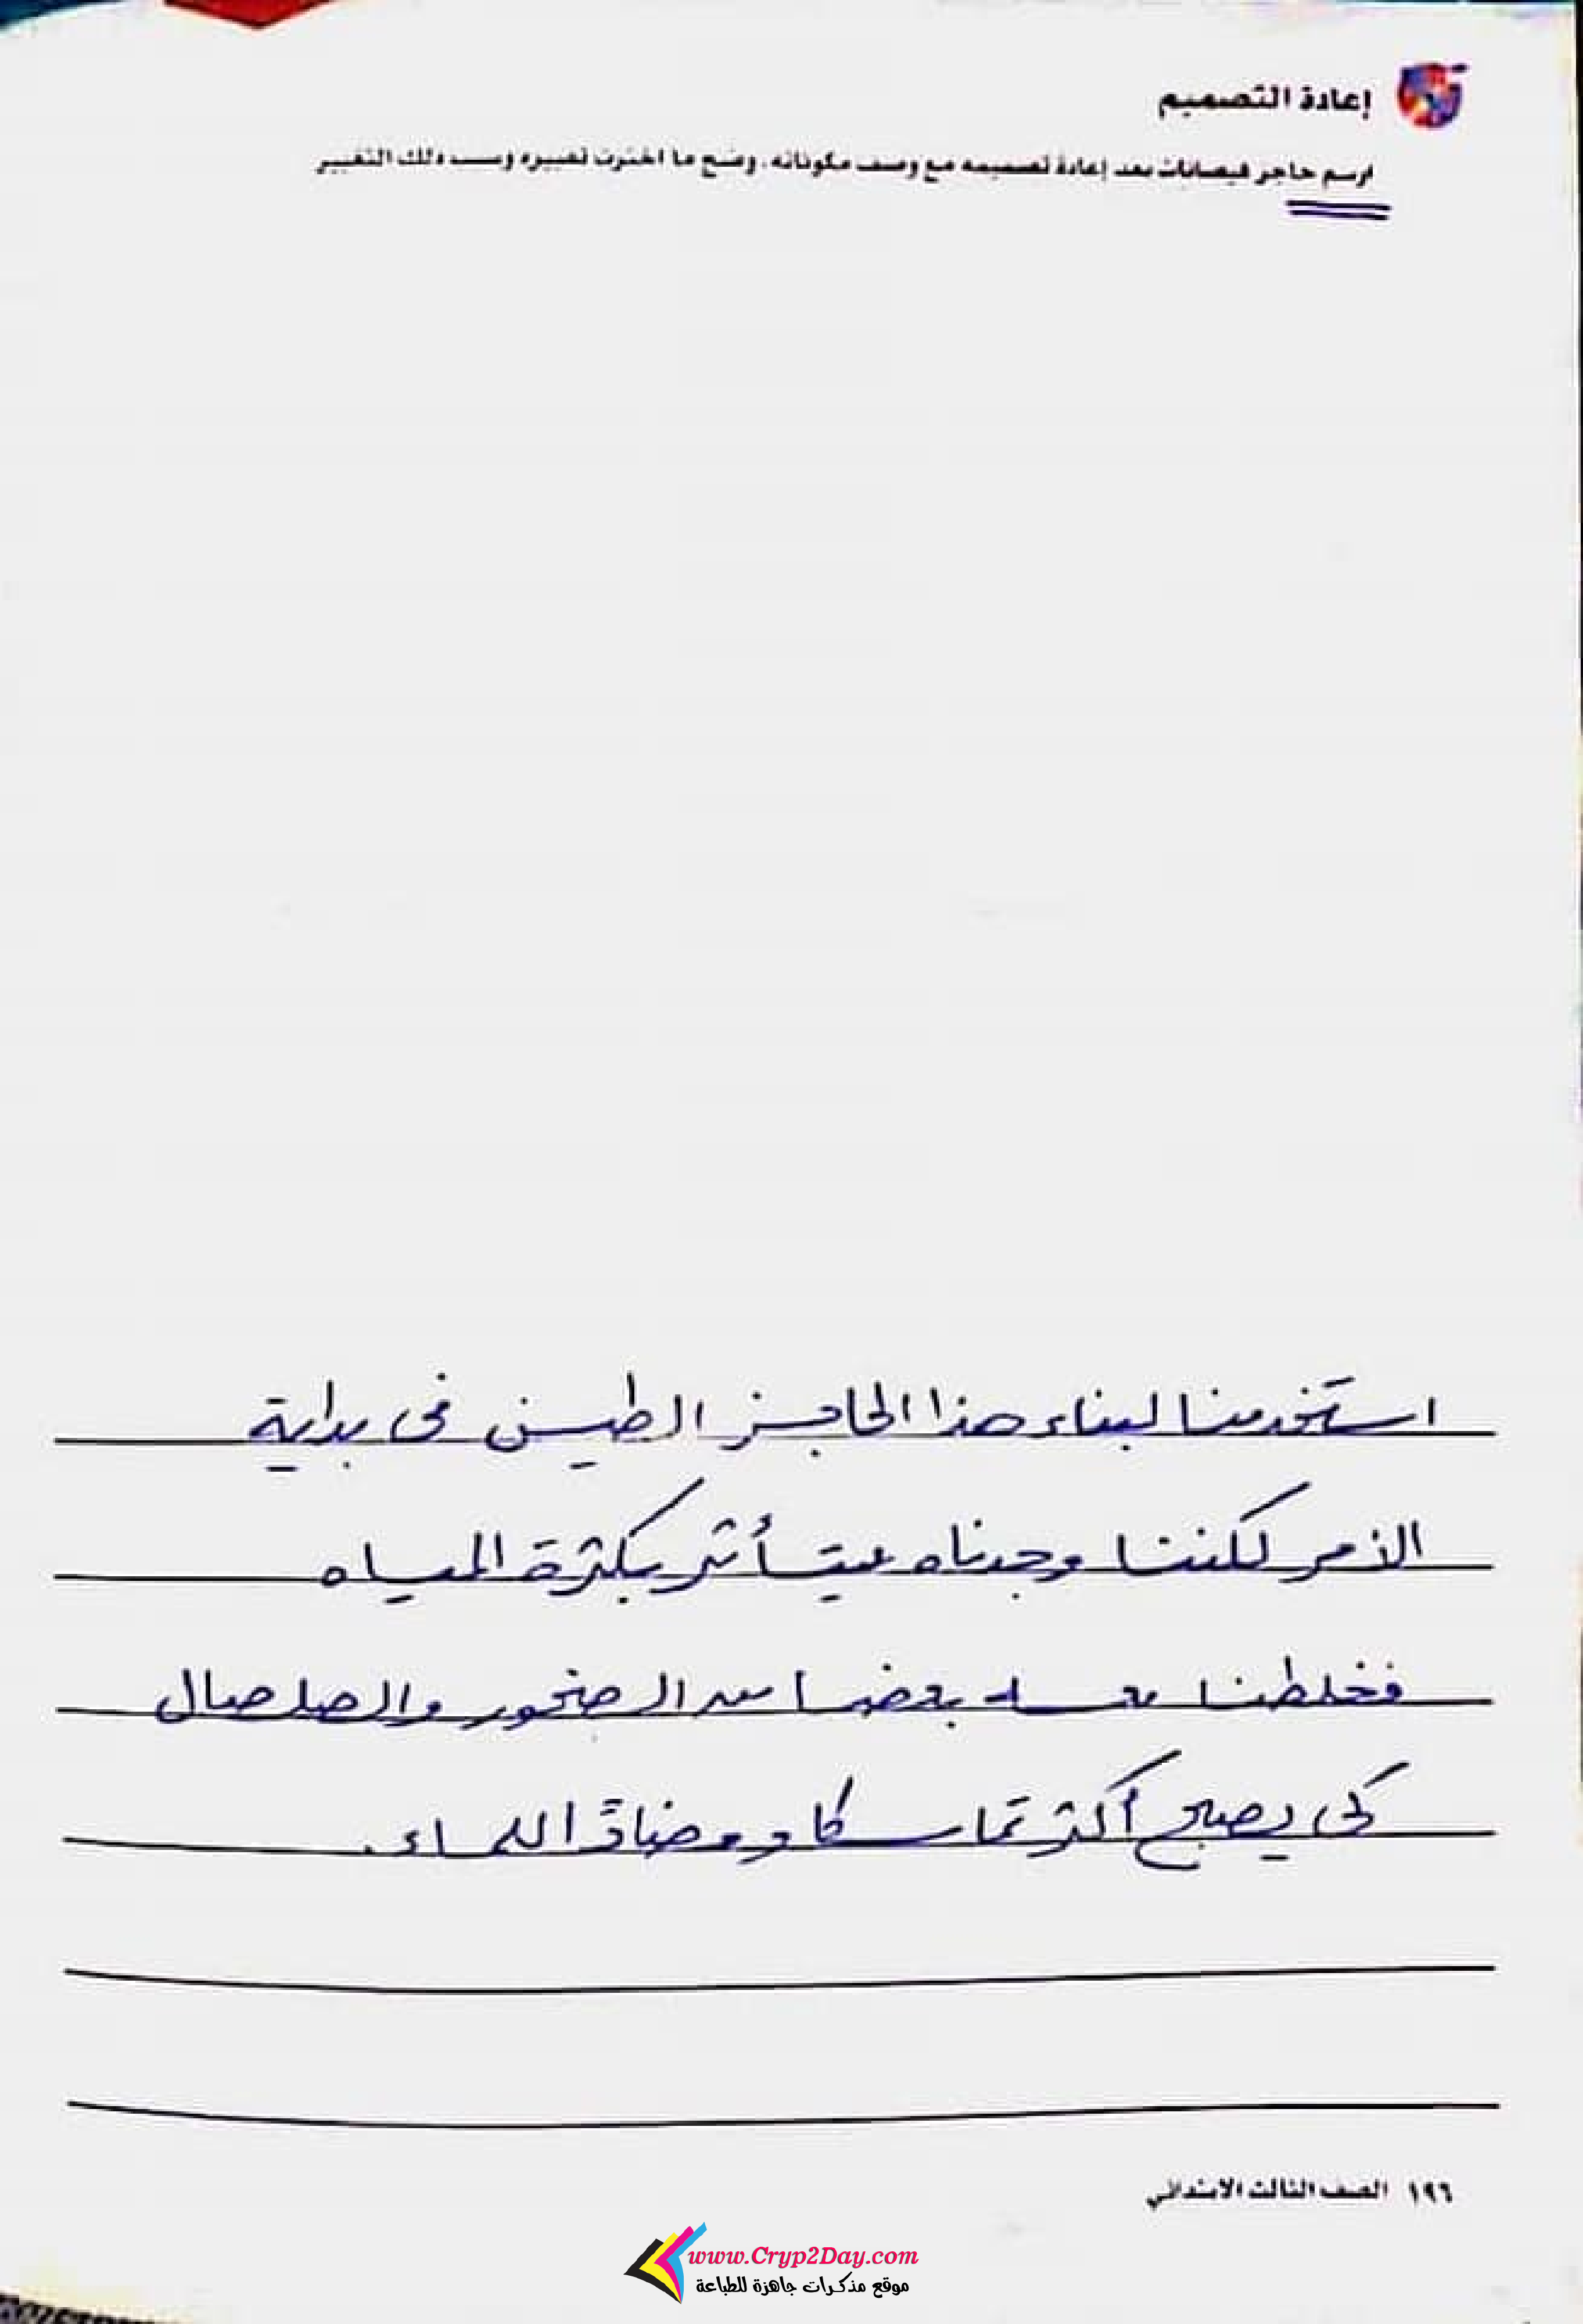 إعادة التصميم
ارسم حاجز فيضانات بعد إعادة تصميمه مع وصف مكوناته. وضح ما اخترت تغييره وسبب ذلك التغيير
استخدمنا لبناء هذا الحاجز الطين فى بداية
الأمر لكننا وجدناه يتأثر بكثرة المياه
فخلطنا معه بعضا من الصخور والصلصال
كى يصبح أكثر تماسكا ومضادًا للماء.
١٩٦ الصف الثالث الابتدائي
www.Cryp2Day.com
موقع مذكرات جاهزة للطباعة